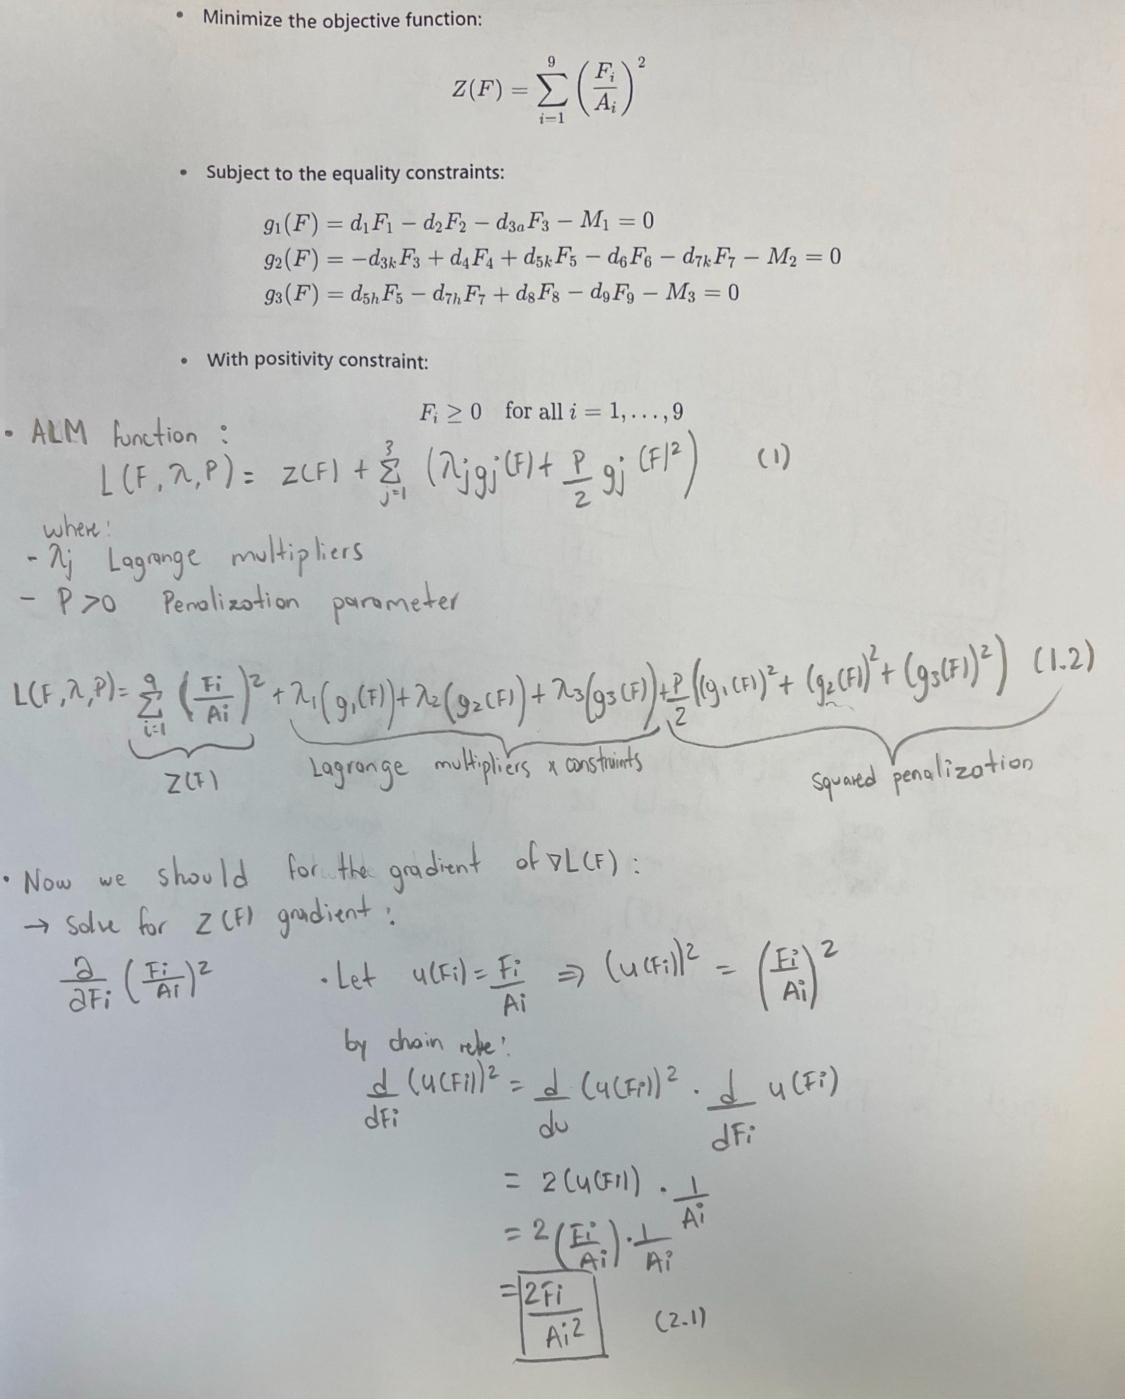 • Minimize the objective function:
Z(F) = \sum_{i=1}^{9} \left( \frac{F_i}{A_i} \right)^2
• Subject to the equality constraints:
g_1(F) = d_1F_1 − d_2F_2 − d_{3a}F_3 − M_1 = 0
g_2(F) = −d_{3k}F_3 + d_4F_4 + d_{5k}F_5 − d_6F_6 − d_{7k}F_7 − M_2 = 0
g_3(F) = d_{5h}F_5 − d_{7h}F_7 + d_8F_8 − d_9F_9 − M_3 = 0
• With positivity constraint:
F_i ≥ 0 for all i = 1, . . . , 9
• ALM function :
L(F, λ, P) = Z(F) + \sum_{j=1}^{3} (λ_j g_j(F) + \frac{P}{2} g_j(F)^2) (1)
where:
- λ_j Lagrange multipliers
- P>0 Penalization parameter
L(F, λ, P) = \sum_{i=1}^{9} \left( \frac{F_i}{A_i} \right)^2 + λ_1(g_1(F)) + λ_2(g_2(F)) + λ_3(g_3(F)) + \frac{P}{2}((g_1(F))^2 + (g_2(F))^2 + (g_3(F))^2) (1.2)
Z(F) Lagrange multipliers x constraints squared penalization
• Now we should for the gradient of ∇L(F) :
→ Solve for Z(F) gradient :
\frac{∂}{∂F_i} \left( \frac{F_i}{A_i} \right)^2 • Let u(F_i) = \frac{F_i}{A_i} ⇒ (u(F_i))^2 = \left( \frac{F_i}{A_i} \right)^2
by chain rule:
\frac{d}{dF_i} (u(F_i))^2 = \frac{d}{du} (u(F_i))^2 · \frac{d}{dF_i} u(F_i)
= 2(u(F_i)) · \frac{1}{A_i}
= 2 \left( \frac{F_i}{A_i} \right) · \frac{1}{A_i}
= \frac{2F_i}{A_i^2} (2.1)